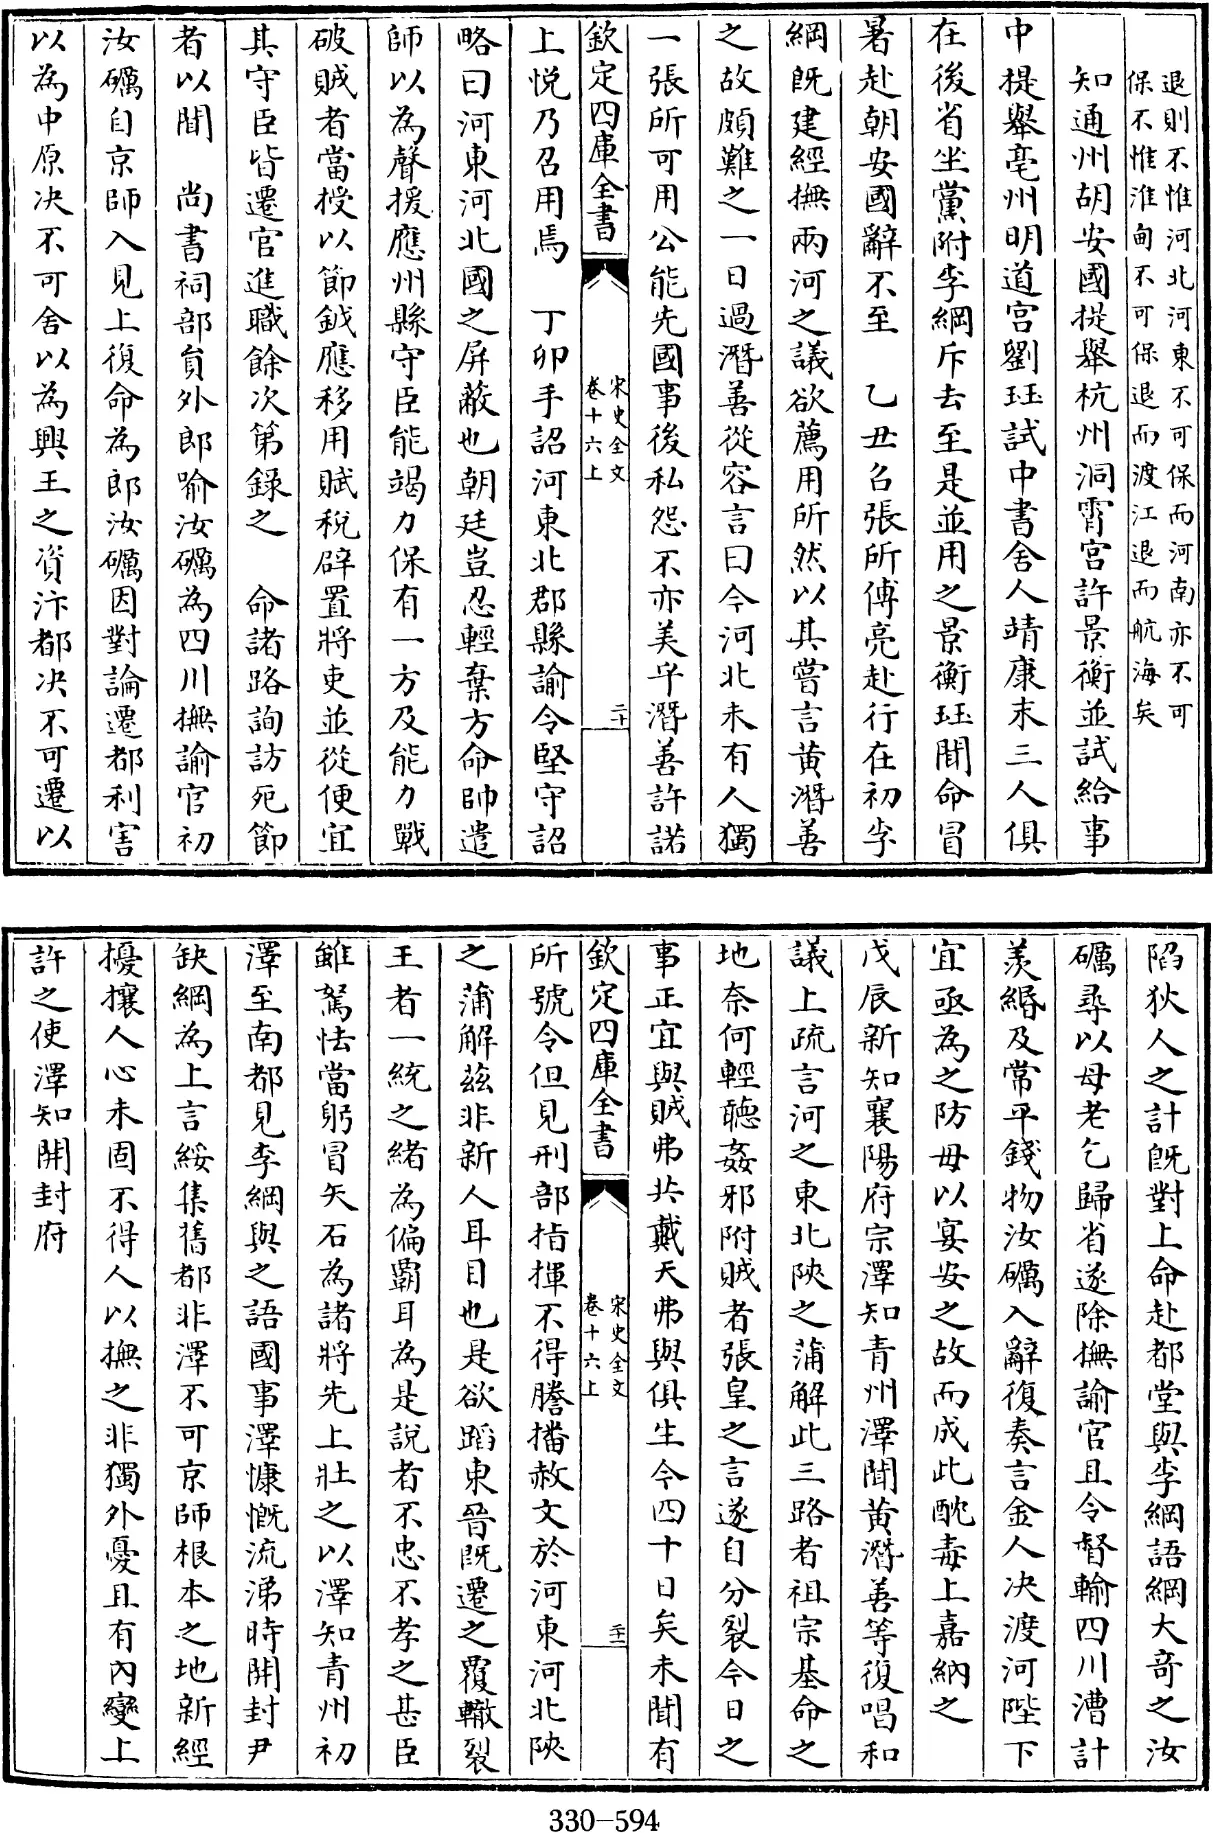 退則不惟河北河東不可保而河南亦不可
保不惟淮甸不可保退而渡江退而航海矣
知通州胡安國提舉杭州洞霄宮許景衡並試給事
中提舉亳州明道宮劉珏試中書舍人靖康末三人俱
在後省坐黨附李綱斥去至是並用之景衡珏聞命冒
暑赴朝安國辭不至　乙丑召張所傅亮赴行在初李
綱旣建經撫兩河之議欲薦用所然以其嘗言黄潛善
之故頗難之一日過潛善從容言曰今河北未有人獨
一張所可用公能先國事後私怨不亦美乎潛善許諾
欽定四庫全書
宋史全文
卷十六上
二十
上悅乃召用焉　丁卯手詔河東北郡縣諭令堅守詔
略曰河東河北國之屏蔽也朝廷豈忍輕棄方命帥遣
師以為聲援應州縣守臣能竭力保有一方及能力戰
破賊者當授以節鉞應移用賦稅辟置將吏並從便宜
其守臣皆遷官進職餘次第錄之　命諸路詢訪死節
者以聞　尚書祠部員外郎喻汝礪為四川撫諭官初
汝礪自京師入見上復命為郎汝礪因對論遷都利害
以為中原决不可舍以為興王之資汴都决不可遷以
陷狄人之計旣對上命赴都堂與李綱語綱大竒之汝
礪尋以母老乞歸省遂除撫諭官且令督輸四川漕計
羡緡及常平錢物汝礪入辭復奏言金人決渡河陛下
宜亟為之防毋以宴安之故而成此酖毒上嘉納之
戊辰新知襄陽府宗澤知青州澤聞黄潛善等復唱和
議上疏言河之東北陜之蒲解此三路者祖宗基命之
地奈何輕聽姦邪附賊者張皇之言遂自分裂今日之
事正宜與賊弗共戴天弗與俱生今四十日矣未聞有
欽定四庫全書
宋史全文
卷十六上
二十一
所號令但見刑部指揮不得謄播赦文於河東河北陜
之蒲解茲非新人耳目也是欲蹈東晉旣遷之覆轍裂
王者一統之緒為偏霸耳為是說者不忠不孝之甚臣
雖駑怯當躬冒矢石為諸將先上壯之以澤知青州初
澤至南都見李綱與之語國事澤慷慨流涕時開封尹
缺綱為上言綏集舊都非澤不可京師根本之地新經
擾攘人心未固不得人以撫之非獨外憂且有內變上
許之使澤知開封府
330-594